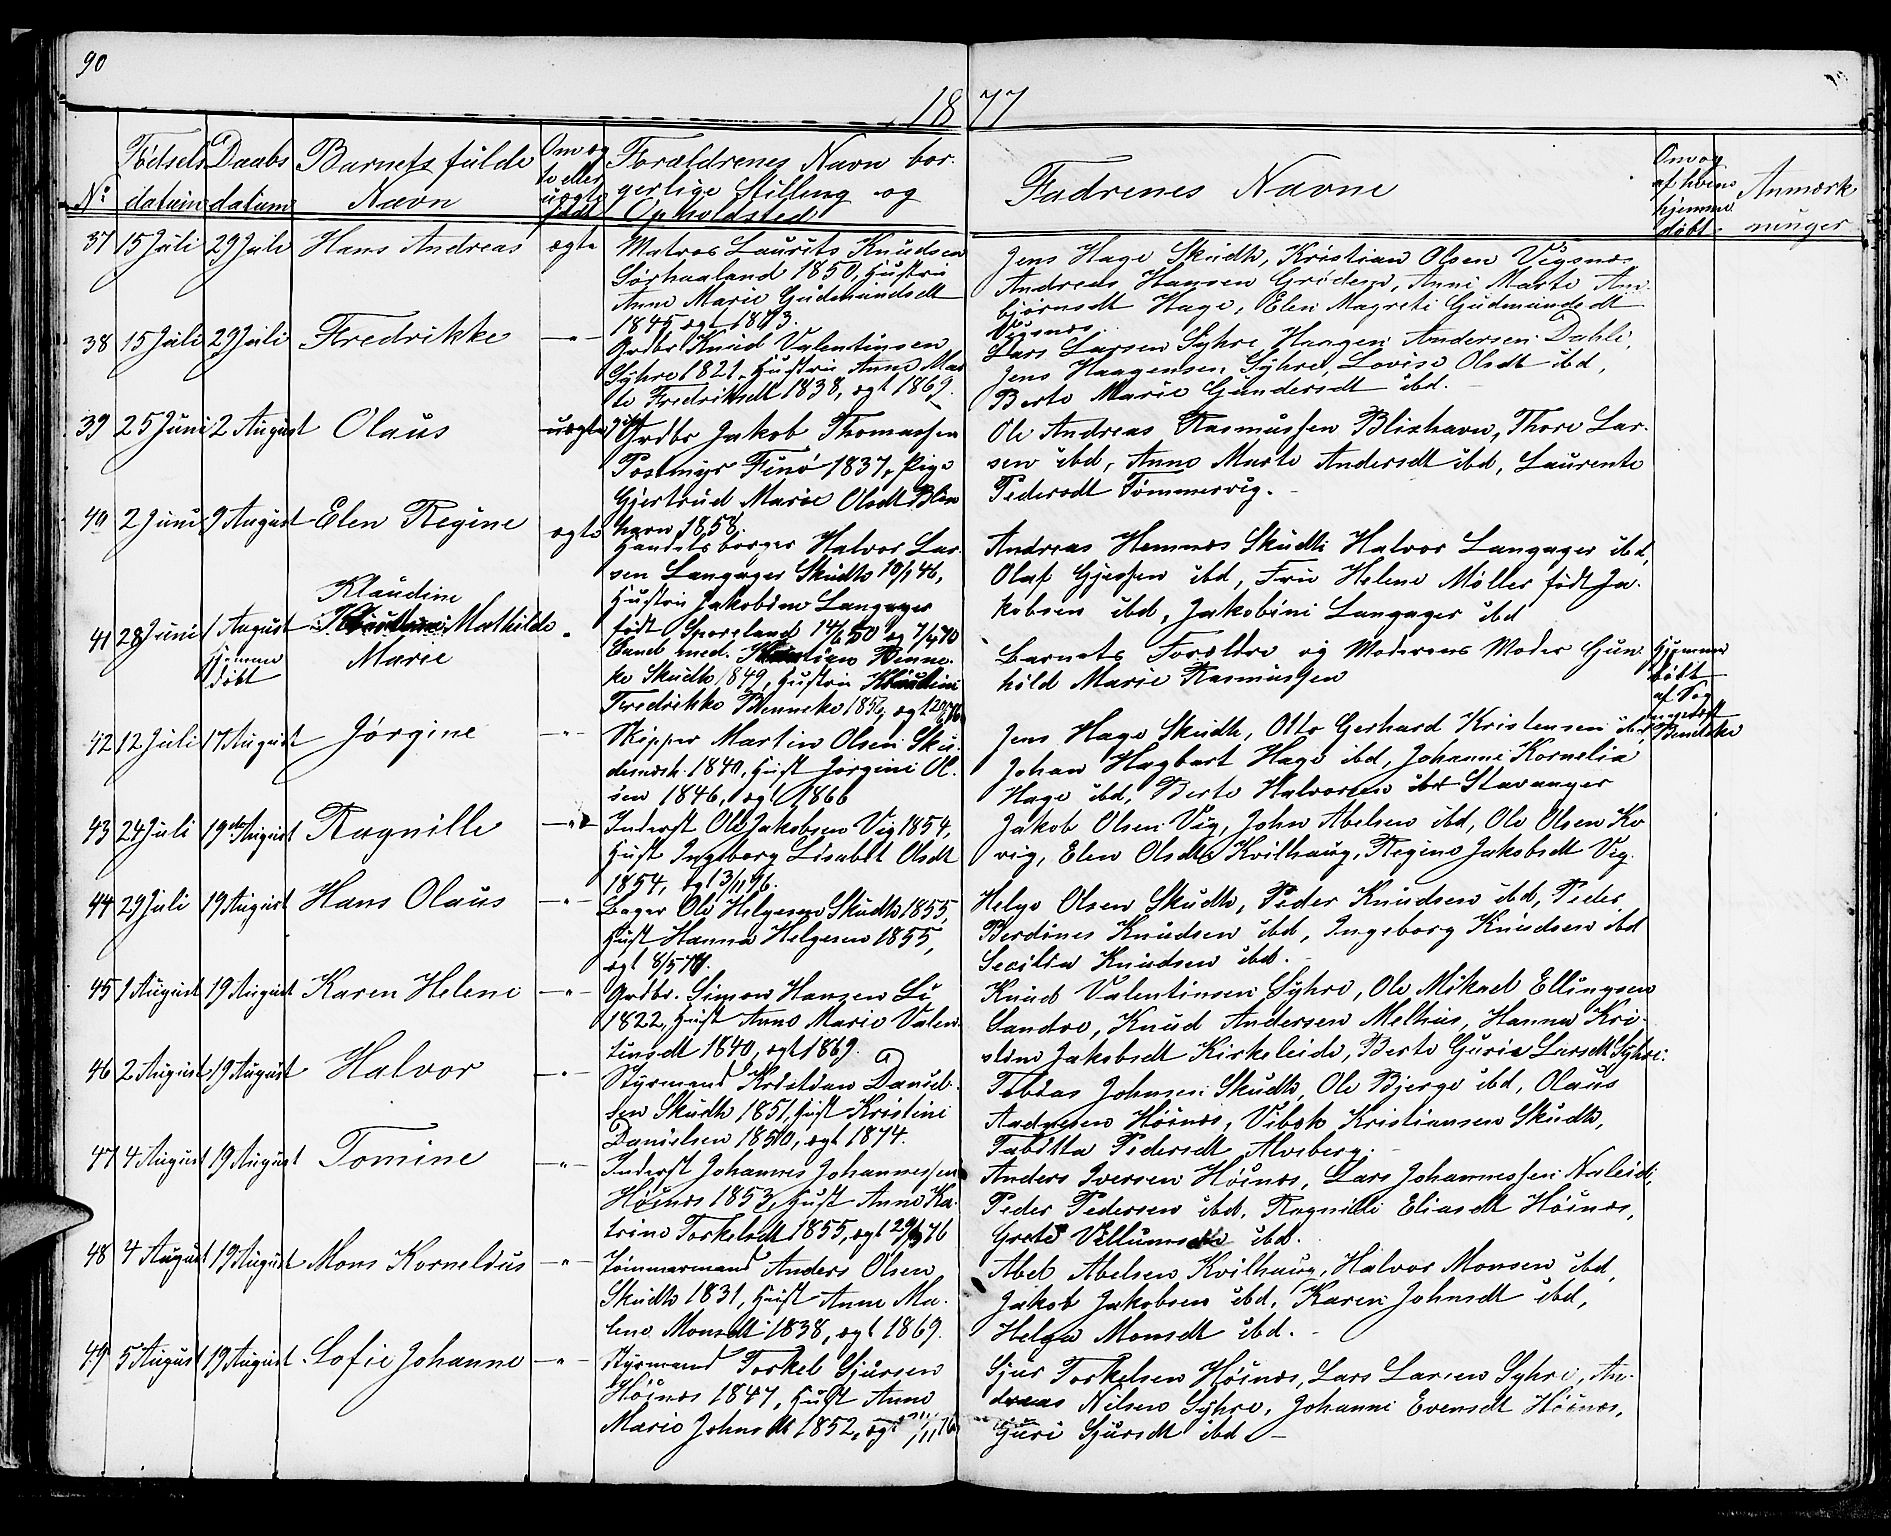 90
18 77
No
Fødsels
datum
Daabs
datum
Barnets fulde
Navn
Om æg
te eller
uægte
født
Forældrenes Navn bor-
gerlige Stilling og
Opholdsted
Fadrenes Navne
Om og
af hvem
hjemme
døbt.
Anmærk
ninger
37 15 Juli 29 Juli Hans Andreas ægte
Matros Laurits Knudsen
Sørhaaland 1850, Hustru
Anne Marie Gudmundsdt
1845 ægt 1873.
Jens Hage Skudh, Kristian Olsen Vigsnæs
Andreas Hansen Grødem, Anne Marte An-
bjørnsdt Hage, Elen Magrete Gudmundsdt
Vigsnæs.
38 15 Juli 29 Juli Fredrikke —"—
Grdbr Knud Valentinsen
Syhre 1821, Hustru Anne Mar
te Fredriksdt 1838, ægt 1869.
Lars Larsen Syhre Haagen Andersen Dahle,
Jens Haagensen Syhre, Lovise Olsdt ibd,
Berte Marie Gundersdt ibd.
39 25 Juni 2 August Olaus uægte
gift Grdbr Jakob Thomassen
Postmyr Finø 1837, Pige
Gjertrud Marie Olsdt Blix
havn 1858.
Ole Andreas Rasmussen Blixhavn, Thore Lar-
sen ibd, Anne Marte Andersdt ibd, Laurente
Pedersdt Tømmervig.
40 2 Juni 9 August Elen Regine ægte
Handelsborger Halvor Lar-
sen Langager Skudh 10/1 46,
Hustru Jakobine Langager
født Snoreland 14/6 50 æg 7/4 70
Andreas Hemnes Skudh Halvor Langager ibd,
Olaf Gjessen ibd, Frue Helene Møller født Ja-
kobsen ibd, Jakobine Langager ibd
41 28 Juni 1 August
hjemme
døbt
Klaudine
Mathilde
Marie
"
Cand. med. Benne-
ke Skudh 1849, Hustru Klaudine
Fredrikke Benneke 1856, ægt
Barnets Forældre og Moderens Moder Gun
hild Marie Rasmussen
Hjemme
døbt
af
Benneke
42 12 Juli 17 August Jørgine —"—
Skipper Martin Olsen Sku-
desnæsh. 1840, Hust Jørgine Ol-
sen 1846, ægt 1866
Jens Hage Skudh, Otto Gerhard Kristensen ibd,
Johan Hagbart Hage ibd, Johanne Kornelia
Hage ibd, Berte Halvorsen ibd Stavanger
43 24 Juli 19de August Ragnille —"—
Inderst Ole Jakobsen Vig 1854,
Hust Ingeborg Lisabet Olsdt
1854, ægt 3/11 76.
Jakob Olsen Vig, John Abelsen ibd, Ole Olsen Kv
vig, Elen Olsdt Kvilhaug, Regine Jakobsdt Vig.
44 29 Juli 19 August Hans Olaus —"—
Bager Ole Helgesen Skudh 1855,
Hust Hanna Helgesen 1855,
ægt 8/5 77.
Helge Olsen Skudh, Peder Knudsen ibd, Peder
Berdines Knudsen ibd, Ingeborg Knudsen ibd
Secilia Knudsen ibd.
45 1 August 19 August Karen Helene —"—
Grdbr. Simon Hansen Li
1822, Hust Anne Marie Valen-
tinsdt 1840, ægt 1869.
Knud Valentinsen Syhre, Ole Mikael Ellingsen
Sandve, Knud Andersen Melhus, Hanna Kri-
stine Jakobsdt Kirkeleide, Berte Gurie Larsdt Syhre.
46 2 August 19 August Halvor —"—
Styrmand Kristian Daniel-
sen Skudh 1851, Hust Kristine
Danielsen 1850, ægt 1874.
Tobias Johnsen Skudh, Ole Bjerge ibd, Olaus
Andresen Høines, Vibek Kristiansen Skudh,
Tabitta Pedersdt Alvsberg.
47 4 August 19 August Tomine —"—
Inderst Johannes Johannessen
Høines 1853, Hust Anne Ka-
trine Torkelsdt 1855, ægt 29/6 76
Anders Iversen Høines, Lars Johannessen Naleide,
Peder Pedersen ibd, Ragnille Eliasdt Høines,
Grete Villumsdt ibd.
48 4 August 19 August Mons Kornelius —"—
Tømmermand Anders Olsen
Skudh 1831, Hust Anne Ma-
lene Monsdt 1838, ægt 1869.
Abel Abelsen Kvilhaug, Halvor Monsen ibd,
Jakob Jakobsen ibd, Karen Johnsdt ibd,
Helga Monsdt ibd.
49 5 August 19 August Sofie Johanne —"—
Styrmand Torkel Sjursen
Høines 1847, Hust Anne
Marie Johnsdt 1852, ægt /11 76
Sjur Torkelsen Høines, Lars Larsen Syhre, An-
dreas Nilsen Syhre, Johanne Evensdt Høines,
Guri Sjursdt ibd.